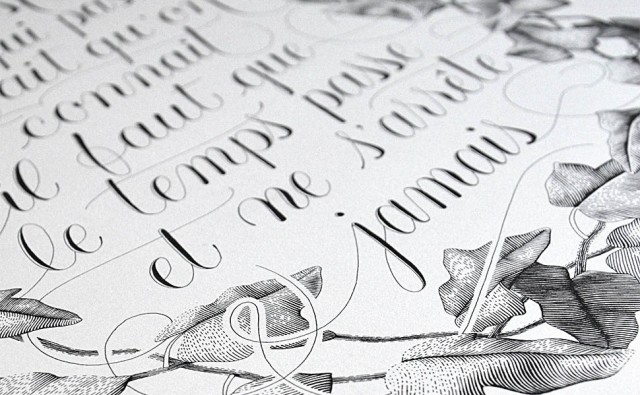 ui pas
ait qu'on
connait
il faut que
le temps passe
et ne s'arrête
jamais